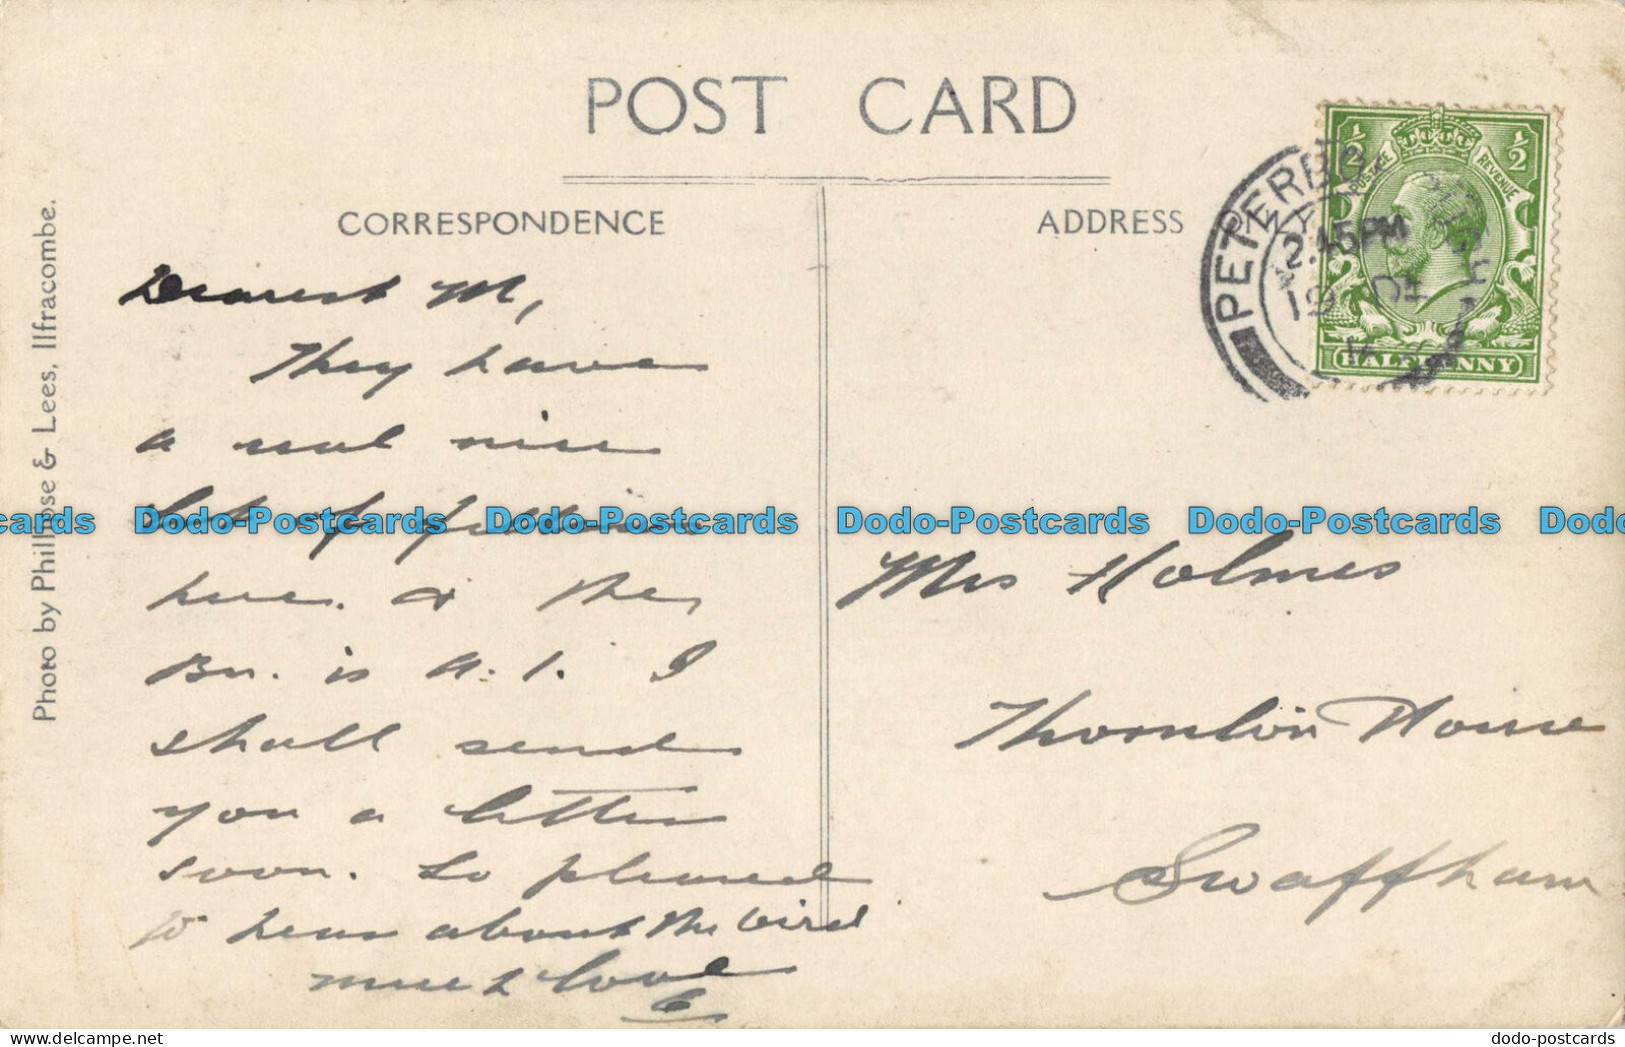 POST CARD
CORRESPONDENCE
ADDRESS ONLY
Photo by Phillipse & Lees, Ilfracombe.
PETERBO
2.45PM
19 DE
1/2 1/2
POSTAGE REVENUE
HALFPENNY
Dearest M,
They have
a real nice
lot of fellows
here. & the
Bn. is a. 1. I
shall send
you a letter
soon. So pleased
to hear about the bird
much love
Mrs Holmes
House
Swaffham
cards Dodo-Postcards Dodo-Postcards Dodo-Postcards Dodo-Postcards Dodo
dodo-postcards